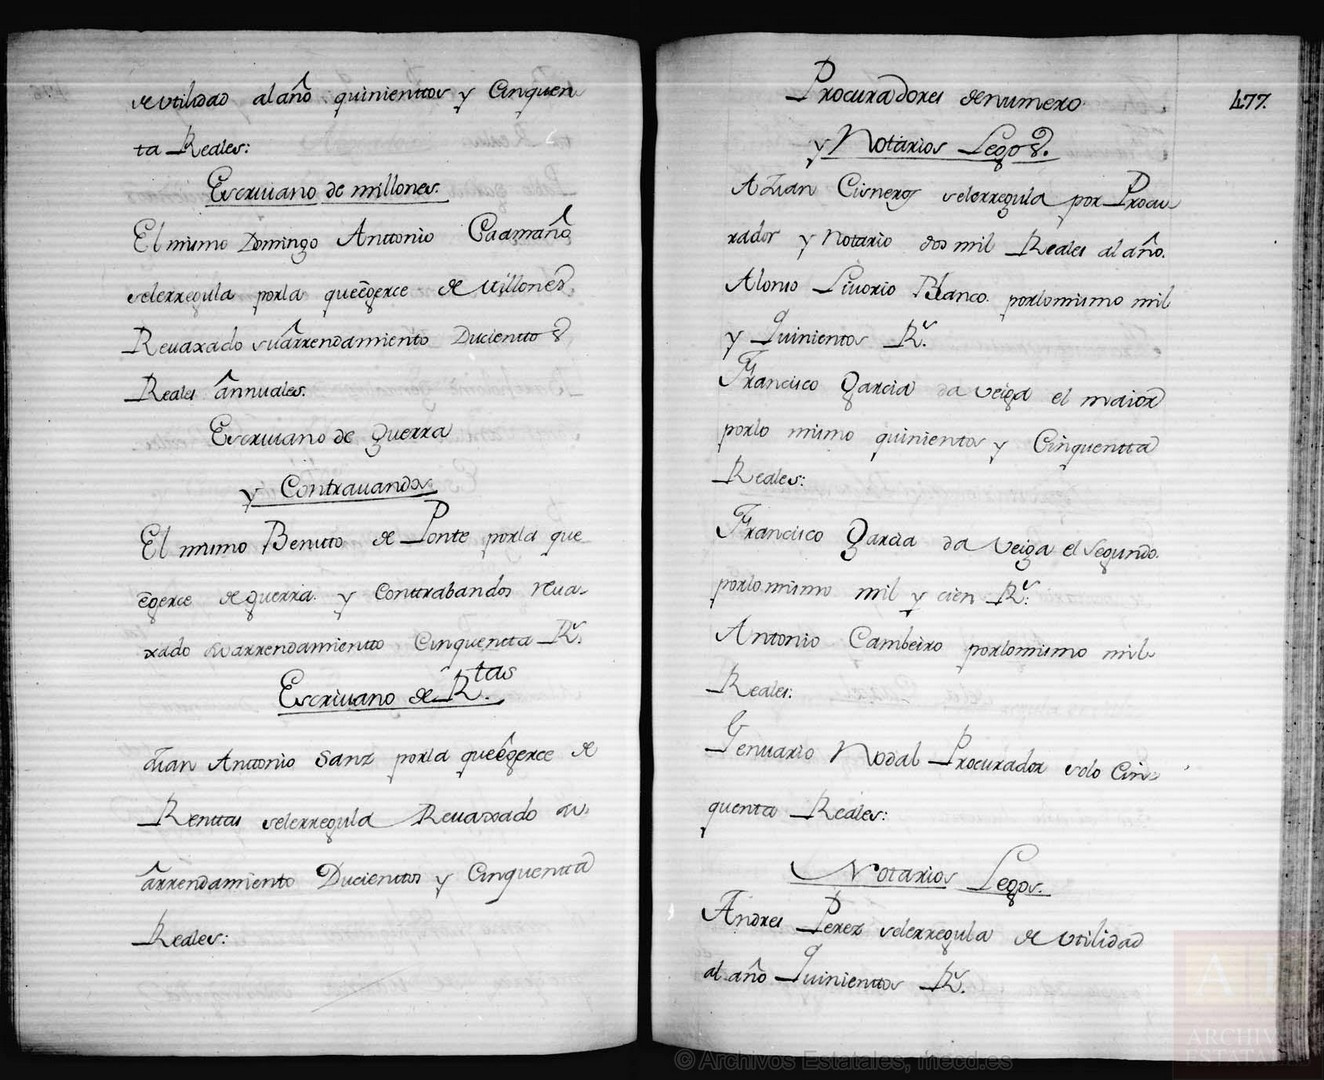 de Utilidad al año quinienttos y Cinquen
ta Reales:
Escriuano de millones.
El mismo Domingo Anttonio Caamaño
selerregula porla queegerce de Millones
Reuaxado suarrendamiento Ducienttos
Reales annuales.
Escriuano de Guerra
y Contrauandos
El mismo Benitto de Ponte porla que
egerce de guerra y Conttrabandos reua-
xado suarrendamientto Cinquentta Rs.
Escriuano de Rtas
Juan Anttonio Sanz porla queegerce de
Renttas selerregula Reuaxado su
arrendamiento Ducienttos y Cinquentta
Reales:
Procuradores denumero
477.
y Notarios Legos.
Juan Cisneros selerregula por Procu
rador y Notario dos mil Reales al año.
Alonso Liuorio Blanco porlomismo mil
y Quinientos Rs.
Francisco Garcia da Veiga el maior
porlo mismo quinientos y Cinquentta
Reales:
Francisco Garcia da Veiga el Segundo
porlo mismo mil y cien Rs:
Antonio Cambeiro porlomismo mil
Reales:
Genuario Nodal Procurador solo Cin-
quenta Reales:
Notarios Legos.
Andres Perez selerregula de Utilidad
al año Quinienttos Rs.
© Archivos Estatales, mecd.es
ARCHIVOS
ESTATALES